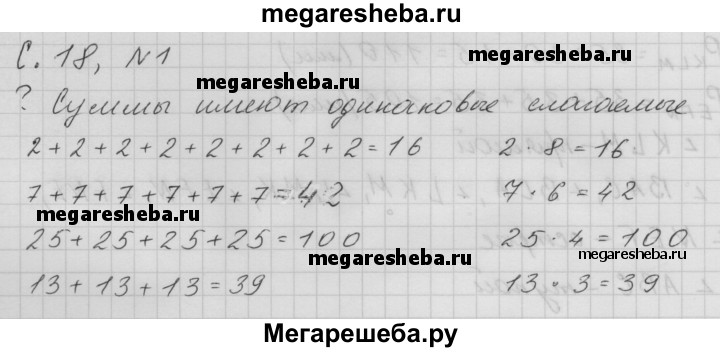 megaresheba.ru
С. 18, №1
megaresheba.ru
? Суммы имеют одинаковые слагаемые
2 + 2 + 2 + 2 + 2 + 2 + 2 + 2 = 16 2 · 8 = 16
7 + 7 + 7 + 7 + 7 + 7 = 42 7 · 6 = 42
megaresheba.ru
25 + 25 + 25 + 25 = 100 25 · 4 = 100
megaresheba.ru megaresheba.ru
13 + 13 + 13 = 39 13 · 3 = 39
Мегарешеба.ру